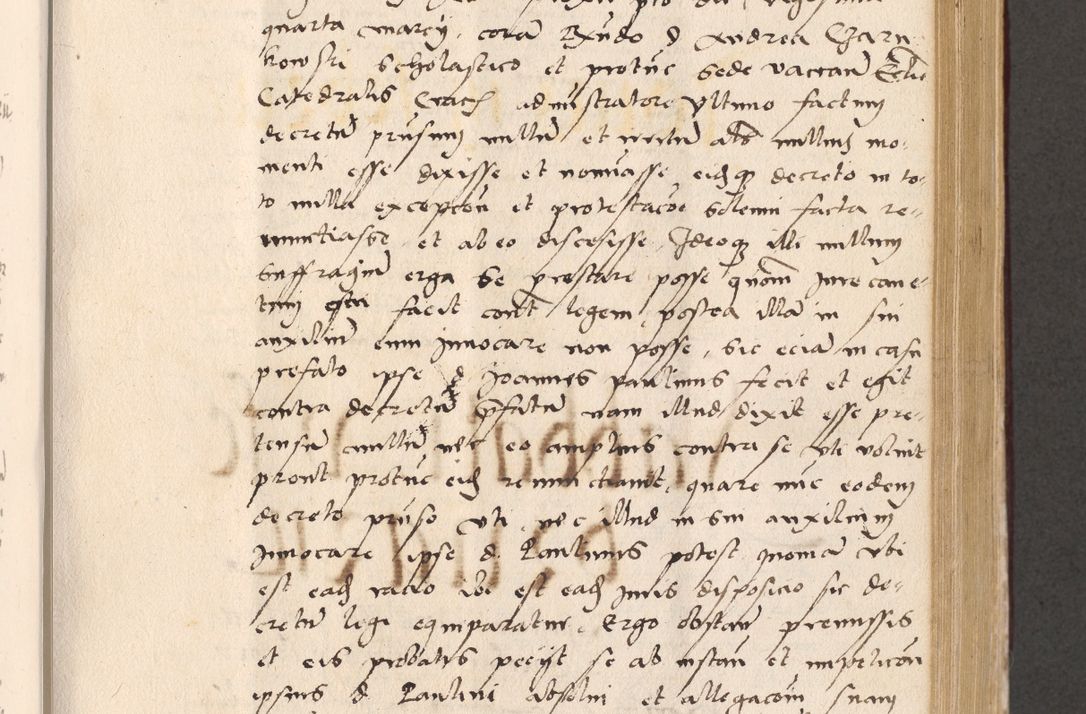 quarta marcÿ, corā Rṽdo D Andrea Czarn
kowski Scholastico et protūc Sede vaccan̄ Eccl̄ie
Catedralis Crac̄ administratore Vltimo factum
decretū prn̄sum nullū et irritū ac nullius mo-
menti esse dixisse et nominasse, eidq̢ decreto in to-
to nulla excepcōn et protestacōe solemni facta re-
nunctiasse et ab eo discessisse, Ideoq̢ illi nullum
suffragiū erga se prestare posse quom̄ Jure cave-
tur facit cont̄ legem, postea illā in sui
auxiliū eum Jnvocare non posse, Sic eciā in casu
prefato ipse d Joannes paulinus fecit et egit
contra decretū p̄fatū nam illud dixit esse pre-
tensū nullū nec eo amplius contra se uti voluit
prout protūc eid̄ renunctiavit, quare nūc eodem
decreto prn̄so vti, nec illud in sui auxilium
Jnvocare ipse d. Paulinus potest Jnomā Vbi
est ead̄ racio ibi est ead̄ Juris disposicio sic de-
cretū legi equiparatur, Ergo obstan̄ premissis
et eis probatis pecijt se ab instan̄ et impeticōn
ipsius d Paulini absolui et allegacōm suam